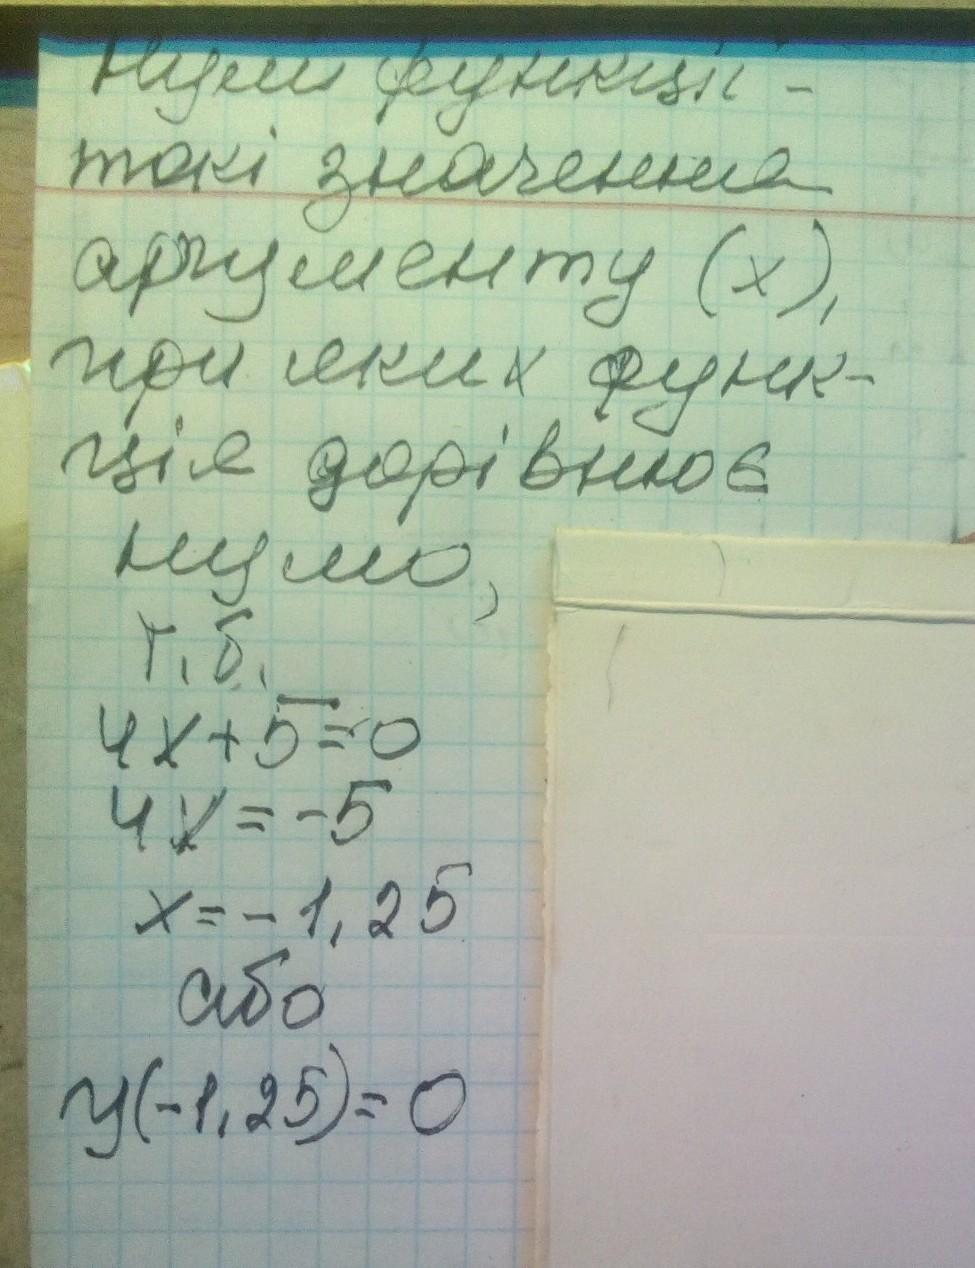 Нулі функції -
такі значення
аргументу (x),
при яких функ-
ція дорівнює
нулю,
т.б.
4x+5=0
4x=-5
x=-1,25
або
y(-1,25)=0